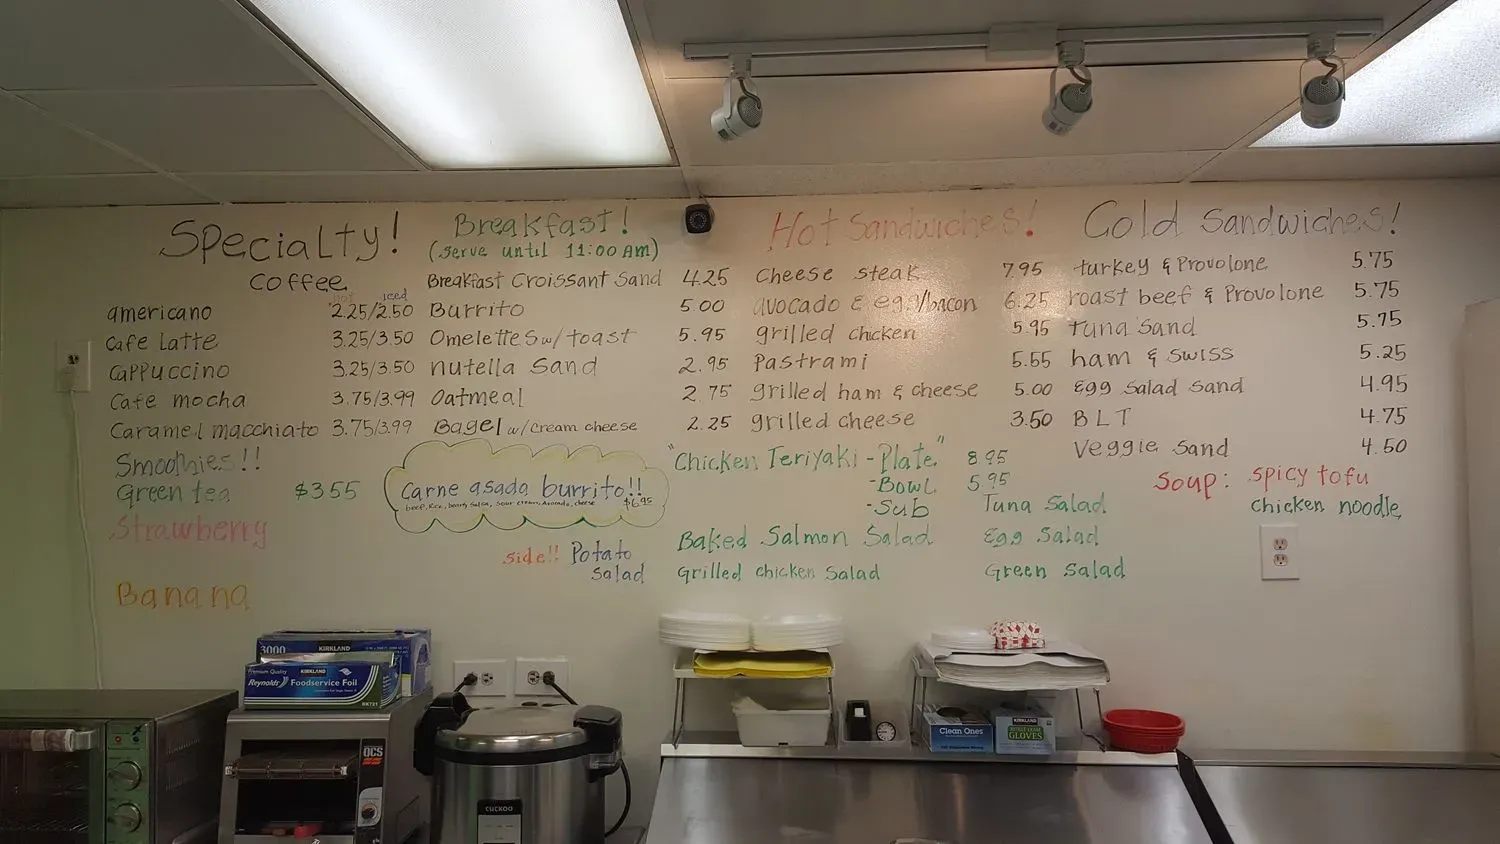 Specialty!
Coffee
hot iced
americano 2.25/2.50
Cafe Latte 3.25/3.50
Cappuccino 3.25/3.50
Cafe mocha 3.75/3.99
Caramel macchiato 3.75/3.99
Smoothies!!
Green tea $3.55
Strawberry
Banana
Breakfast!
(serve until 11:00 AM)
Breakfast Croissant Sand 4.25
Burrito 5.00
Omelettes w/ toast 5.95
nutella Sand 2.95
Oatmeal 2.75
Bagel w/cream cheese 2.25
Carne asada burrito!!
beef, Rice, beans, Salsa, Sour cream, Avocado, cheese $6.95
side!! Potato
Salad
Hot Sandwiches!
Cheese steak 7.95
avocado & egg/bacon 6.25
grilled chicken 5.95
Pastrami 5.55
grilled ham & cheese 5.00
grilled cheese 3.50
"Chicken Teriyaki - Plate" 8.95
- Bowl 5.95
- Sub
Tuna Salad
Baked Salmon Salad
Egg Salad
Grilled chicken Salad
Green Salad
Cold Sandwiches!
turkey & Provolone 5.75
roast beef & Provolone 5.75
Tuna Sand 5.75
ham & Swiss 5.25
Egg Salad Sand 4.95
BLT 4.75
Veggie Sand 4.50
Soup: Spicy tofu
chicken noodle
3000 KIRKLAND
Premium Quality KIRKLAND
Reynolds Foodservice Foil
QCS
CUCKOO
Clean Ones
KIRKLAND
GLOVES